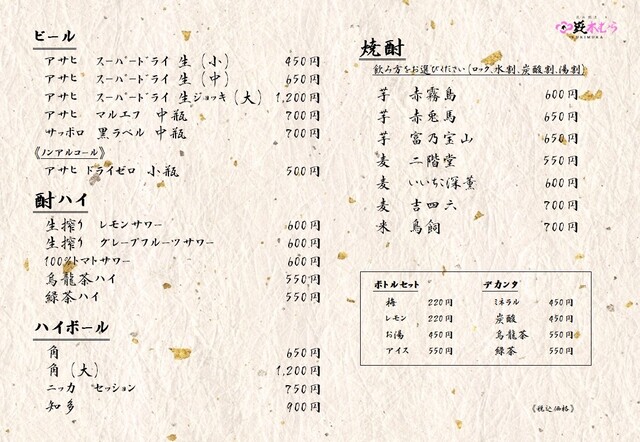 ビール
アサヒ スーパードライ 生 (小) 450円
アサヒ スーパードライ 生 (中) 650円
アサヒ スーパードライ 生ジョッキ (大) 1,200円
アサヒ マルエフ 中瓶 700円
サッポロ 黒ラベル 中瓶 700円
《ノンアルコール》
アサヒ ドライゼロ 小瓶 500円
酎ハイ
生搾り レモンサワー 600円
生搾り グレープフルーツサワー 600円
100%トマトサワー 600円
烏龍茶ハイ 550円
緑茶ハイ 550円
ハイボール
角 650円
角 (大) 1,200円
ニッカ セッション 750円
知多 900円
木むら
YUKIMURA
焼酎
飲み方をお選びください (ロック、水割、炭酸割、湯割)
芋 赤霧島 600円
芋 赤兎馬 650円
芋 富乃宝山 650円
麦 二階堂 550円
麦 いいちこ深薫 600円
麦 吉四六 700円
米 鳥飼 700円
ボトルセット
梅 220円
レモン 220円
お湯 450円
アイス 550円
デカンタ
ミネラル 450円
炭酸 450円
烏龍茶 550円
緑茶 550円
《税込価格》